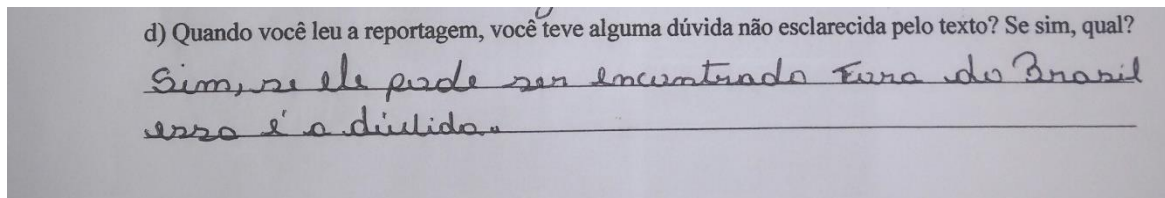 d) Quando você leu a reportagem, você teve alguma dúvida não esclarecida pelo texto? Se sim, qual?
Sim, se ele pode ser encontrado Fora do Brasil
essa é a dúvida.